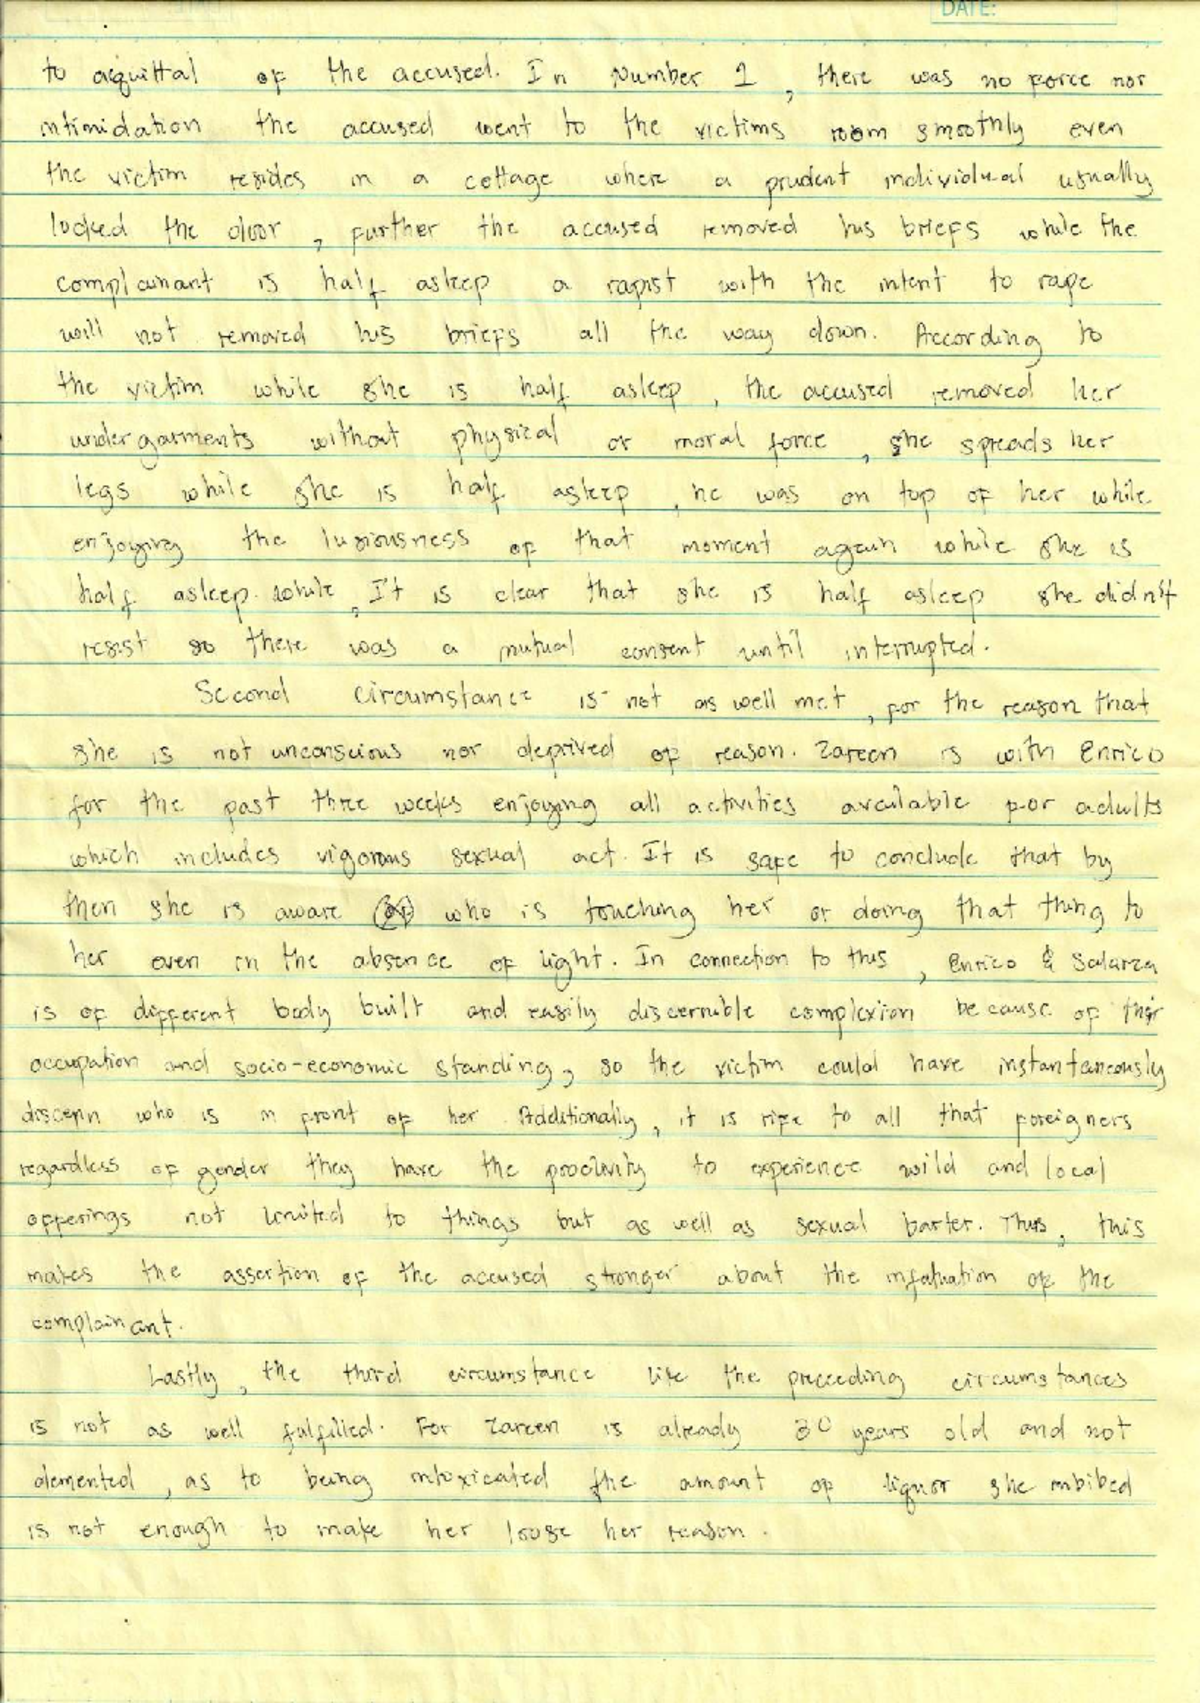 DATE:
to acquittal of the accused. In Number 1, there was no force nor
intimidation the accused went to the victims room smoothly even
the victim resides in a cottage where a prudent individual usually
locked the door, further the accused removed his briefs while the
complainant is half asleep a rapist with the intent to rape
will not removed his briefs all the way down. According to
the victim while she is half asleep, the accused removed her
undergarments without physical or moral force, she spreads her
legs while she is half asleep, he was on top of her while
enjoying the luxiousness of that moment again while she is
half asleep. while, It is clear that she is half asleep she didn't
resist so there was a mutual consent until interrupted.
Second circumstance is not as well met, for the reason that
she is not unconscious nor deprived of reason. Zareen is with Enrico
for the past three weeks enjoying all activities available for adults
which includes vigorous sexual act. It is safe to conclude that by
then she is aware who is touching her or doing that thing to
her even in the absence of light. In connection to this, Enrico & Salarza
is of different body built and easily discernible complexion because of their
occupation and socio-economic standing, so the victim could have instantaneously
discern who is in front of her. Additionally, it is rife to all that foreigners
regardless of gender they have the proclivity to experience wild and local
offerings not limited to things but as well as sexual barter. Thus, this
makes the assertion of the accused stronger about the infatuation of the
complainant.
Lastly, the third circumstance like the preceeding circumstances
is not as well fulfilled. For Zareen is already 30 years old and not
demented, as to being intoxicated the amount of liquor she imbibed
is not enough to make her loose her reason.